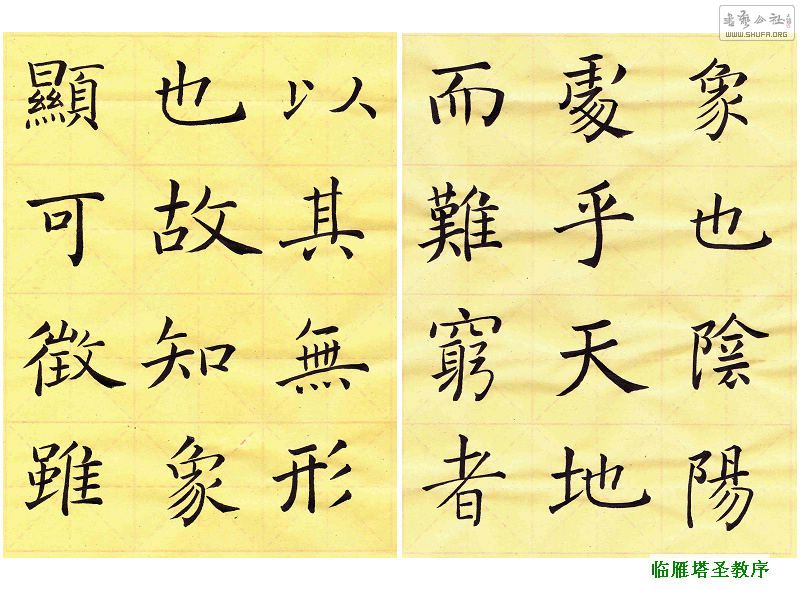 書藝公社
WWW.SHUFA.ORG
象也陰陽
處乎天地
而難窮者
以其無形
也故知象
顯可徵雖
临雁塔圣教序